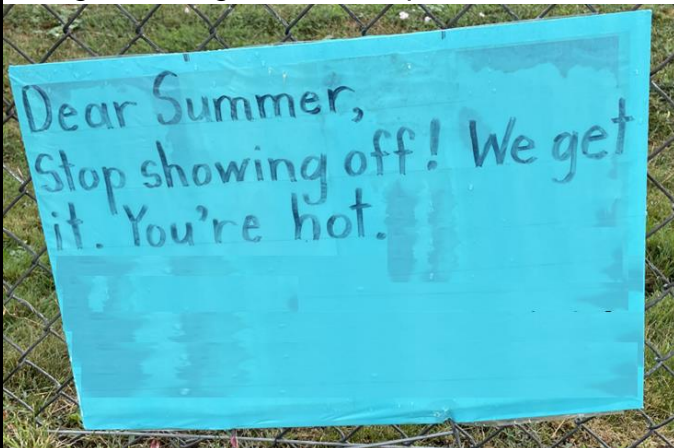 Dear Summer,
Stop showing off! We get
it. You're hot.